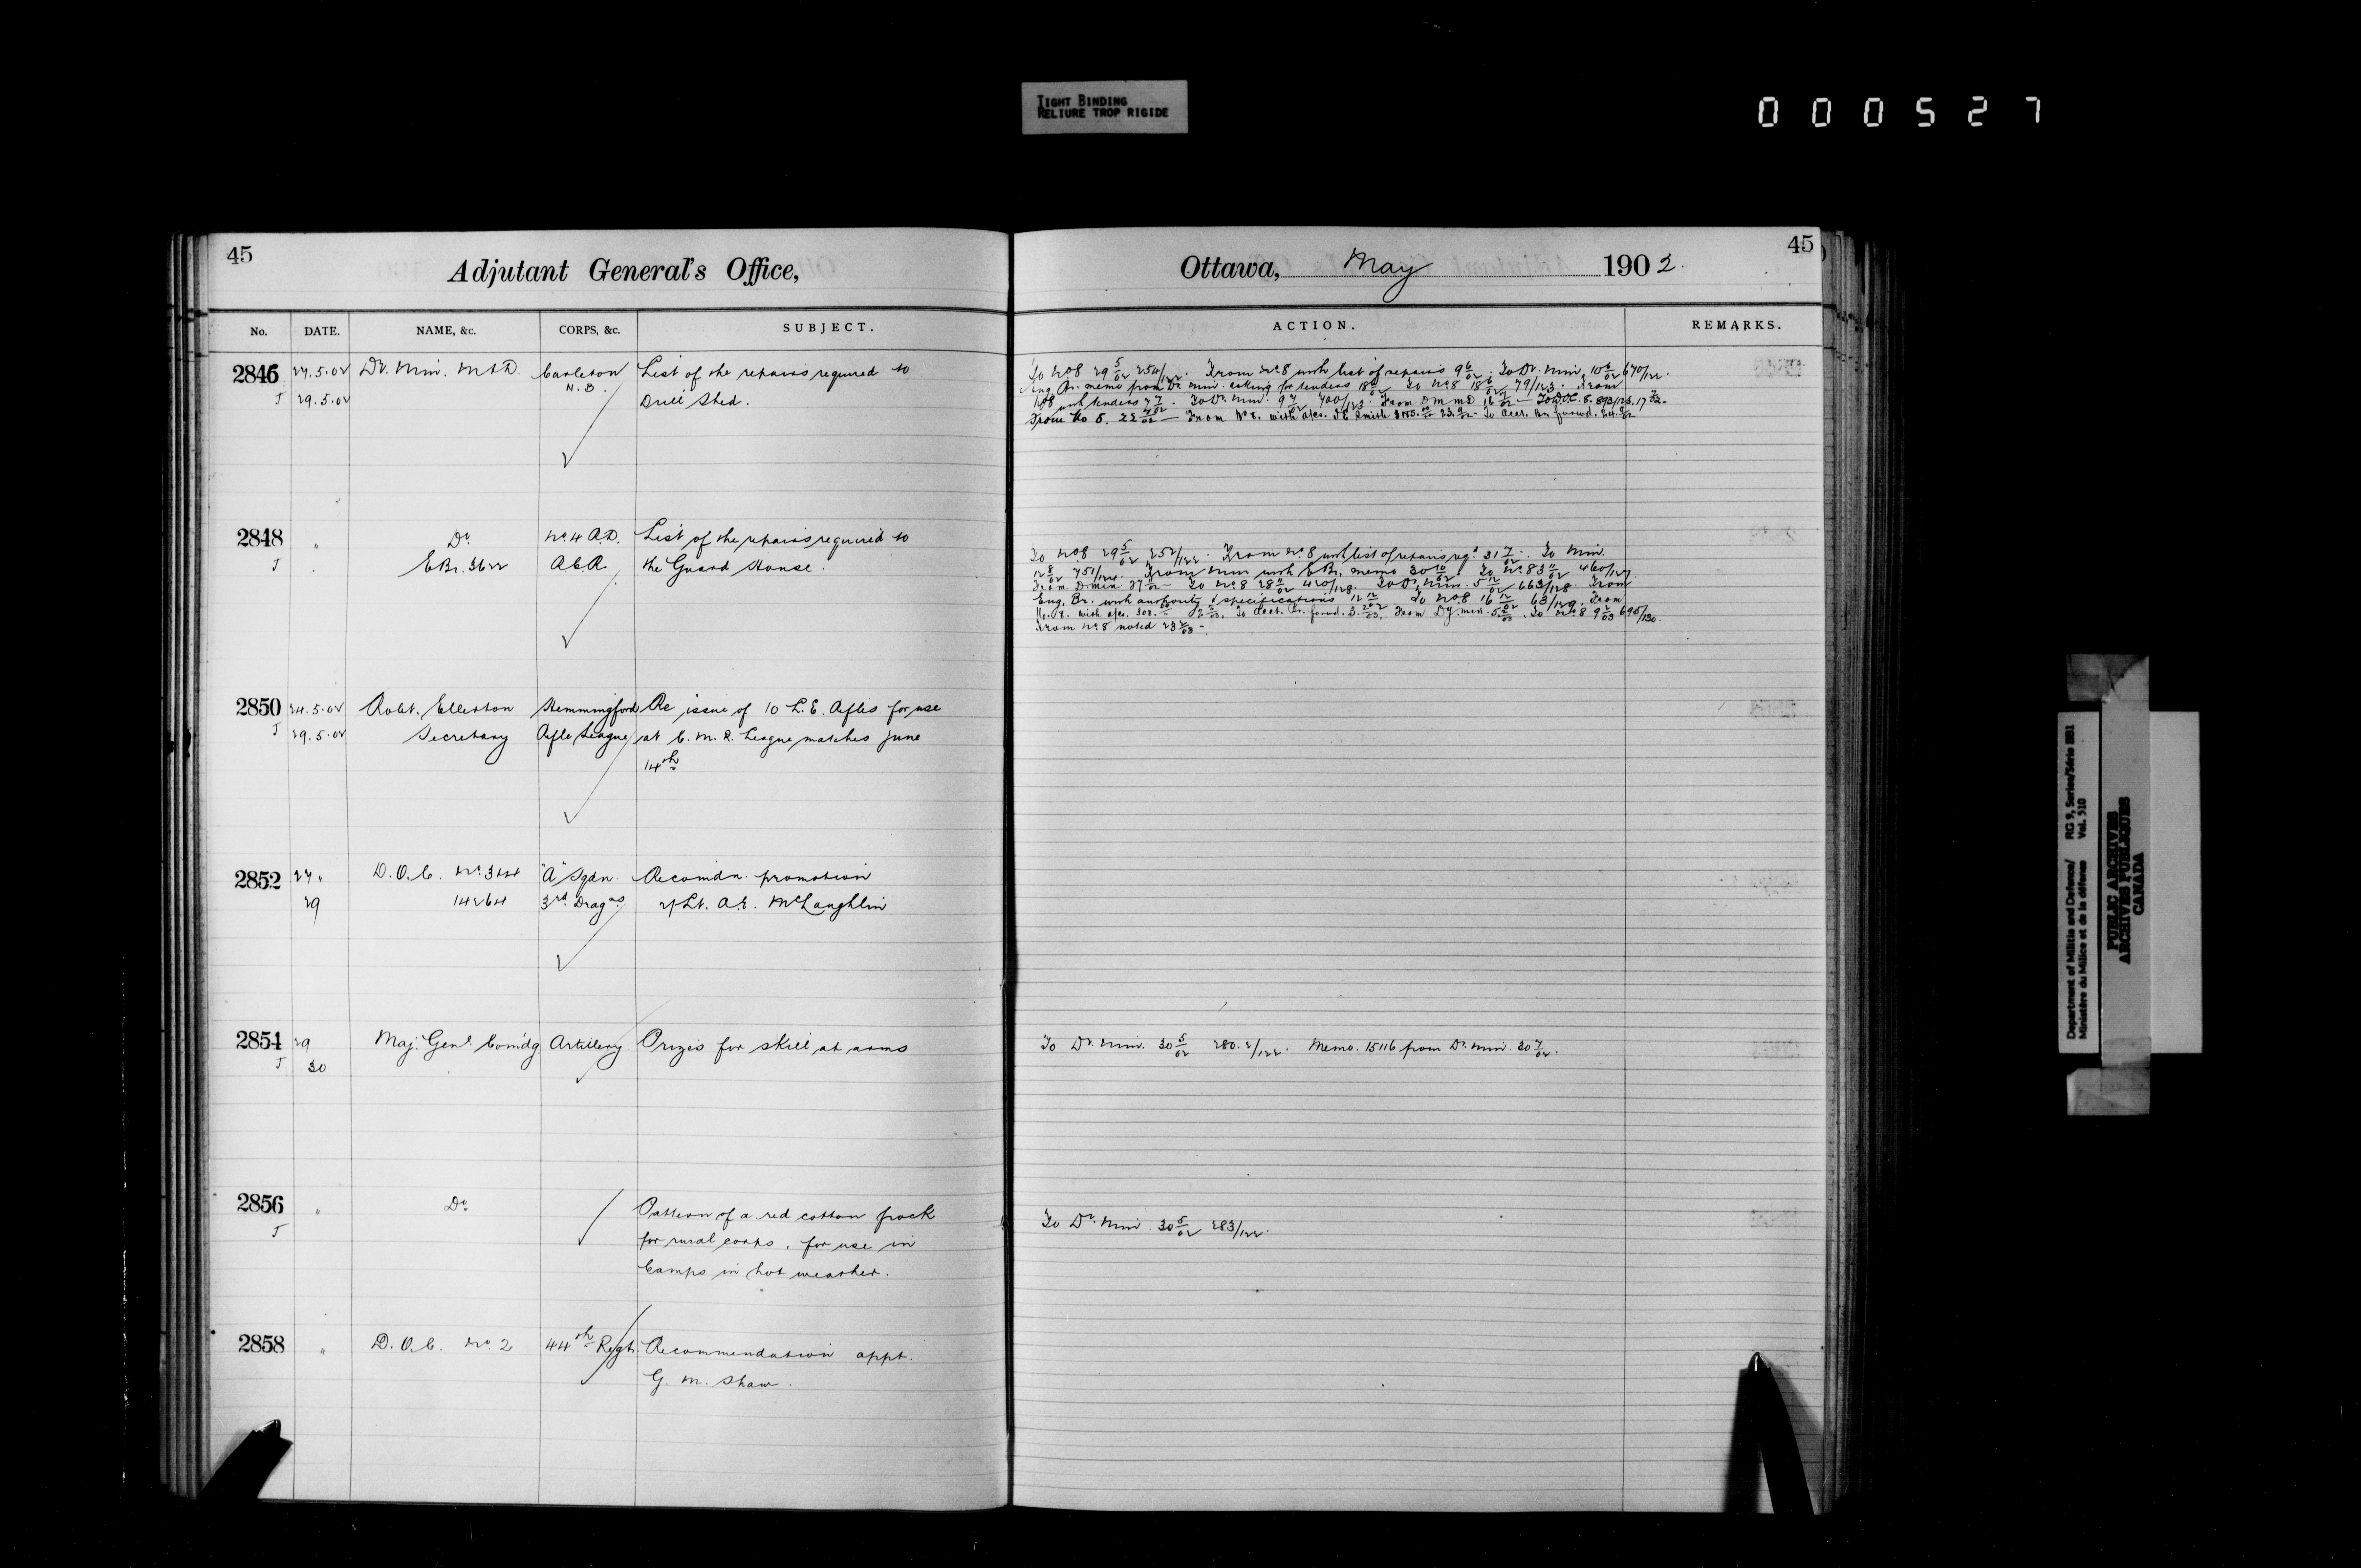 TIGHT BINDING
RELIURE TROP RIGIDE
000527
45
Adjutant General's Office,
No. DATE. NAME, &c. CORPS, &c. SUBJECT.
2846 27.5.02 Dy. Min. M & D. Carleton List of the repairs required to
J 29.5.02 N.B. Drill Shed.
2848 " Do No. 4 R.D. List of the repairs required to
J . E Br. 3622 R.C.R. the Guard House.
2850 24.5.02 Robt. Ellerton Hemmingford Re issue of 10 L.E. Rifles for use
J 29.5.02 Secretary Rifle League at C.M.R. League matches June
14th
2852 27 " D.O.C. No. 3 & 4 "A" Sqdn. Recomdn. promotion
29 14264 3rd Dragns 2/Lt. A.E. McLaughlin
2854 29 Maj. Genl. Comdg. Artillery Prizes for skill at arms
J 30
2856 " Do Pattern of a red cotton frock
J for rural corps, for use in
Camps in hot weather.
2858 " D.O.C. No. 2 44th Regt. Recommendation appt.
G. M. Shaw.
45
Ottawa, May 1902.
ACTION. REMARKS.
To No 8 29 5/02 254/122. From No 8 with list of repairs 9 6/02. To Dy. Min. 10 6/02 670/122.
Eng. Br. memo from Dy. Min. asking for tenders 18 6/02 To No 8 18 6/02 79/123. From
No 8 with tenders 7/02. To Dy. Min. 9 7/02 700/123. From D M M D 16 7/02 — To D.O.C. 8. 893/123. 17 7/02.
From No 8. 22 7/02 — From No 8. with a/cs. Smith 23 To Acct. Br. forwd. 24
To No 8 29 5/02 252/122. From No 8 with list of repairs reqd. 31 7/02. To Min.
12 8/02 751/124. From Min with E Br. memo 30 10/02. To No 8 3 11/02 460/127.
From D Min. 27 11/02 — To No 8 28 11/02 410/128. To Dy. Min. 5 12/02 663/128. From
Eng. Br. with authority & specifications 12 12/02. To No 8 16 12/02 63/129. From
No. 8. with a/cs. To Acct. Br. forwd. 3. From Dy Min. 5 2/03. To No 8 9 2/03 695/130.
From No 8 noted 23 2/03 -
To Dy. Min. 30 5/02 280.2/122. Memo. 15116 from Dy. Min. 30 7/02.
To Dy. Min. 30 5/02 283/122.
Department of Militia and Defence/ RG 9, Series/Série IIB1
Ministère du Milice et de la défense Vol. 510
PUBLIC ARCHIVES
ARCHIVES PUBLIQUES
CANADA